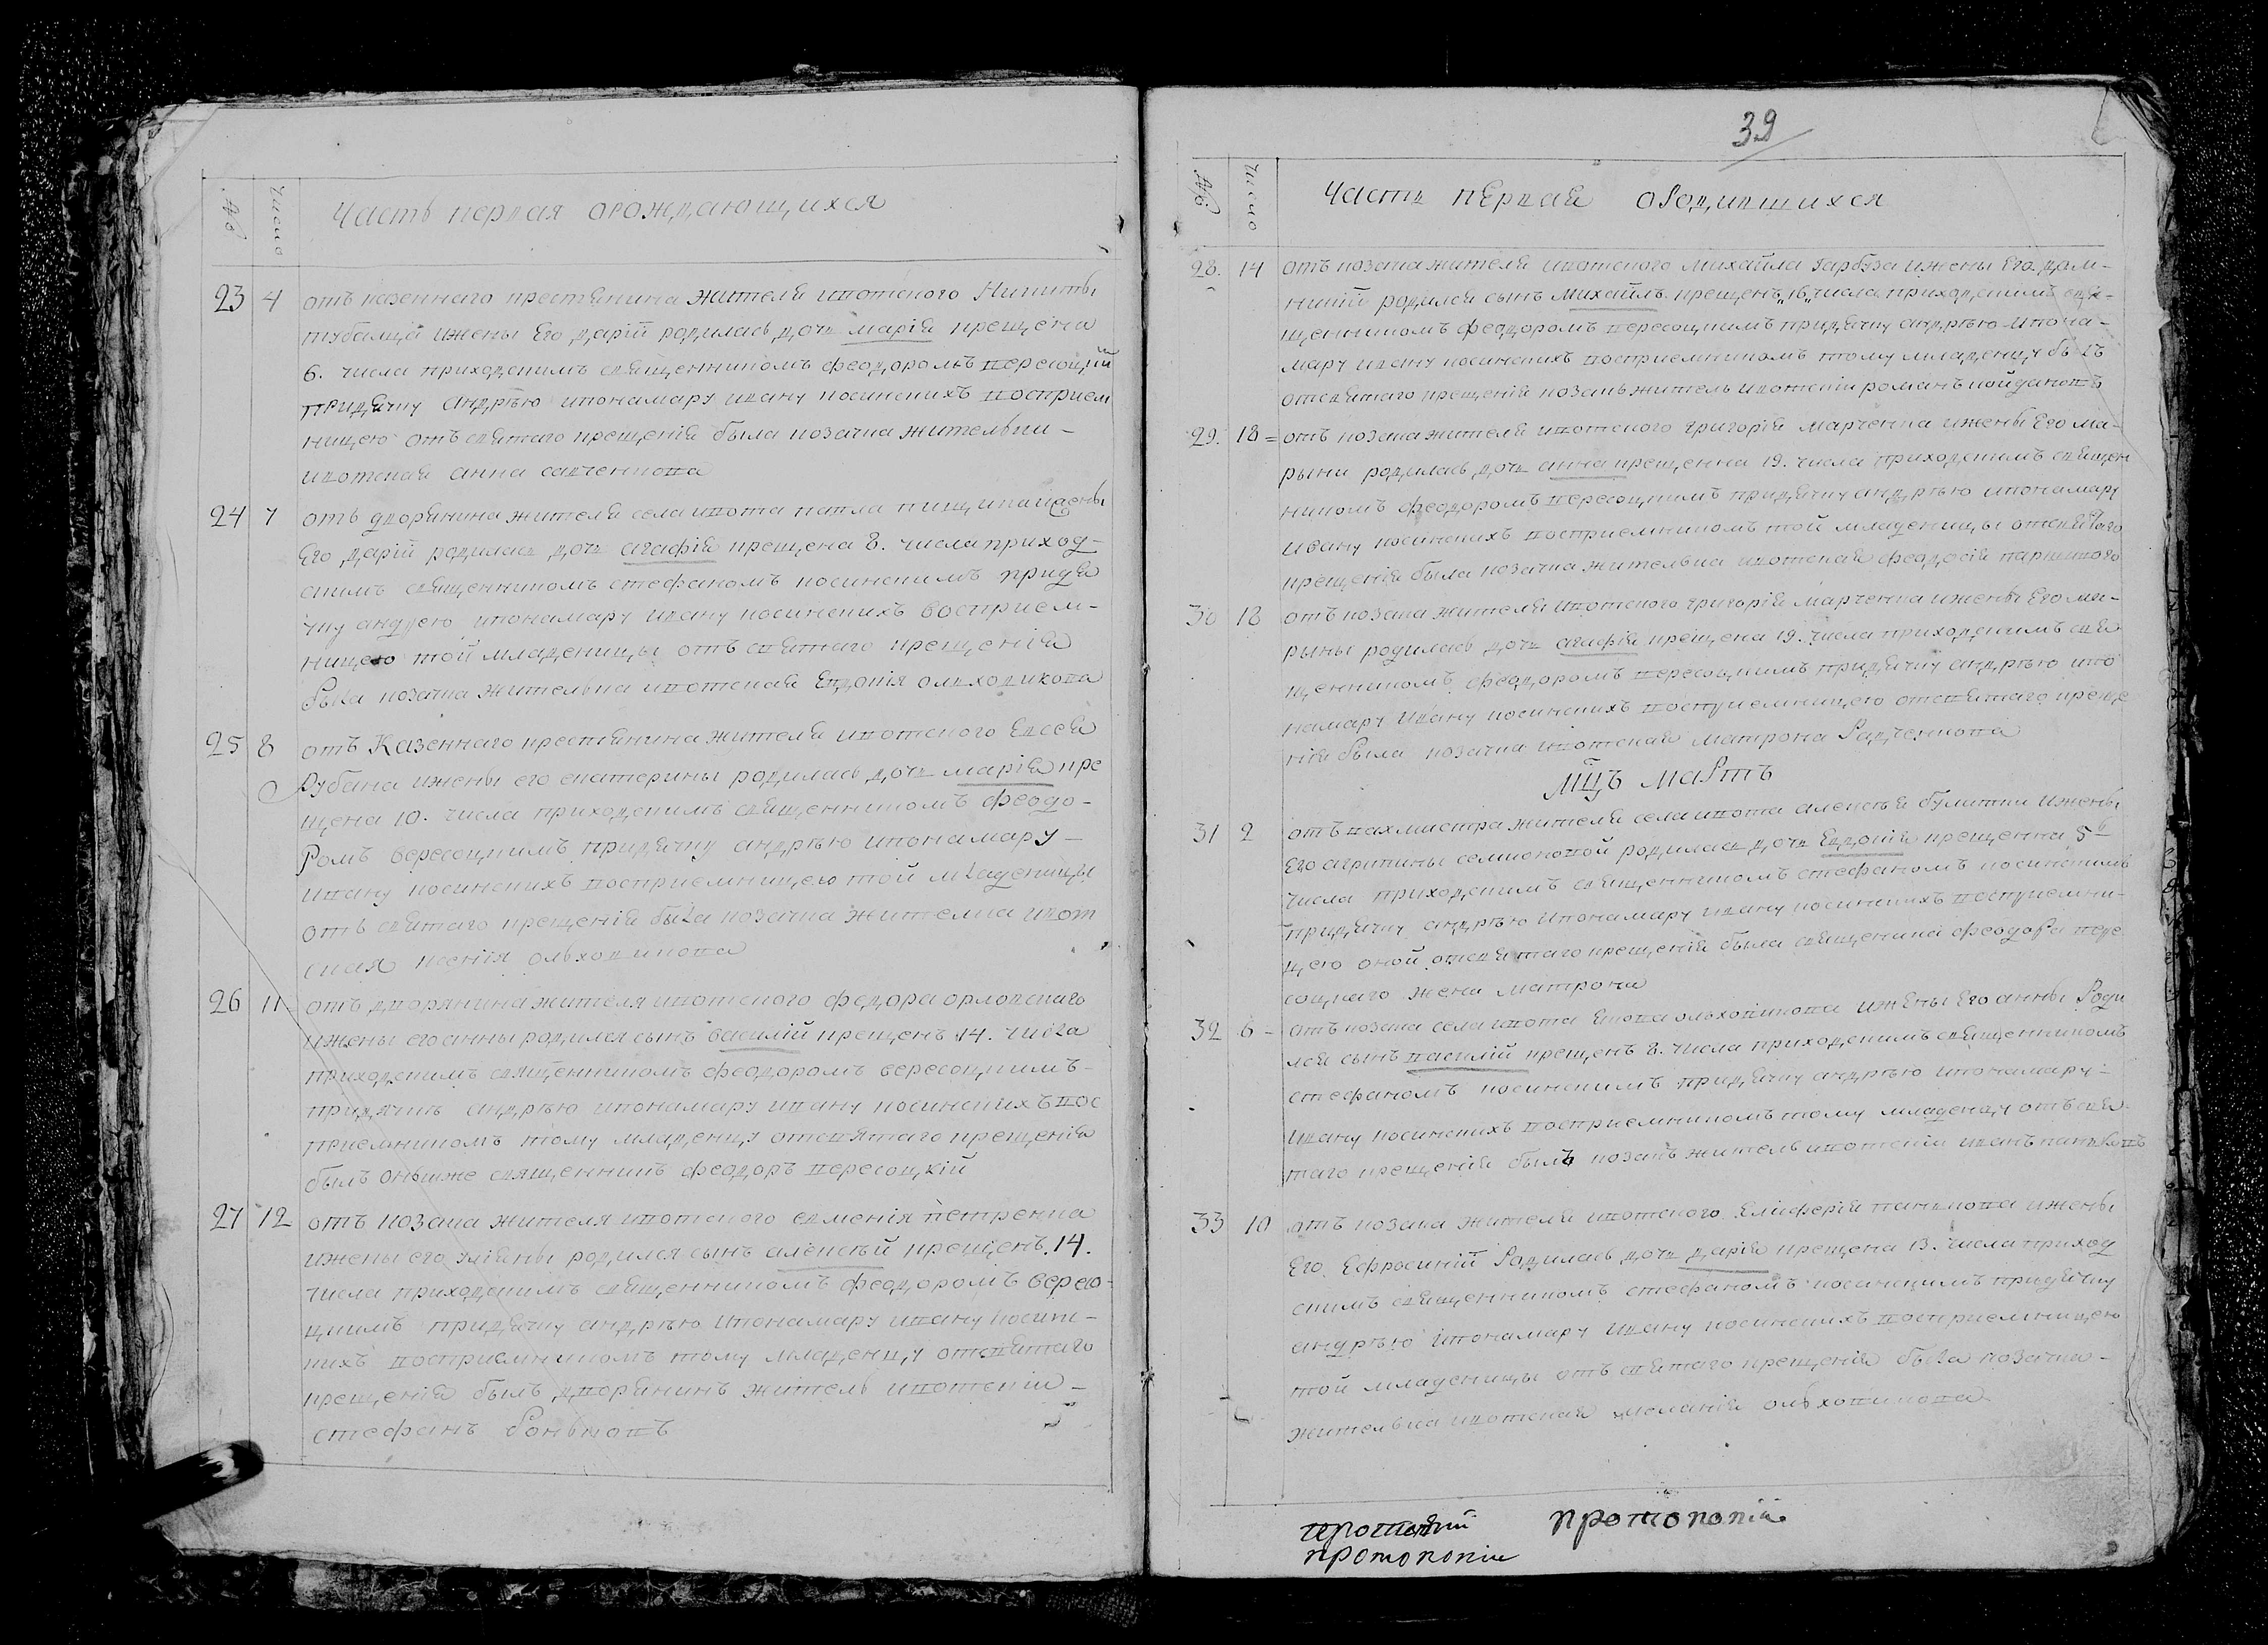 № Число Часть первая орождающихся
23 4 отъ казеннаго крестянина жителя ивотского Никиты
губамца ижены Его дарїй родилась дочь марїя крещена
6. числа приходскимъ священникомъ феодоромъ вересоцкій
придячку андрѣю ипонамару ивану косинскихъ восприем
ницею отъ святаго крещенія была козачка жителька -
ивотская анна савченкова
24 7 отъ дворянина жителя села ивота павла
Его дарїй родилась дочь агафїя крещена 8. числа приход-
скимъ священникомъ стефаномъ косинскимъ придя
чку андрею ипонамару ивану косинскихъ восприем-
ницею той младеницы отъ святаго крещенїя
была козачка жителька ивотская Евдокія ольховикова
25 8 отъ Казеннаго крестянина жителя ивотского Евсея
Рубана ижены его екатерины родилась дочь марїя кре
щена 10. числа приходскимъ священникомъ феодо-
Ромъ вересоцкимъ придячку андрѣю ипонамару -
ивану косинскихъ восприемницею той младеницы
отъ святаго крещенїя была козачка жителка ивот
ская ксенїя ольховикова
26 11 отъ дворянина жителя ивотского федора орловскаго
ижены его анны родился сынъ василїй крещенъ 14. числа
приходскимъ священникомъ феодоромъ вересоцкимъ -
придячку андрѣю ипонамару ивану косинскихъ вос
приемникомъ тому младенцу отсвятаго крещенїя
былъ онъиже священникъ феодоръ вересоцкій
27 12 отъ козака жителя ивотского петренка
ижены его улїяны родился сынъ алексѣй крещенъ 14.
числа приходскимъ священникомъ феодоромъ вересо-
цкимъ придячку андрѣю ипонамару ивану косинс-
кихъ восприемникомъ тому младенцу отсвятаго
крещенїя былъ дворянинъ жителъ ивотскїи -
стефанъ
39
№ Число Часть первая ородившихся
28. 14 отъ козака жителя ивотского михаила гарбуза ижены Его дом-
никїй родился сынъ михаилъ крещенъ 16 числа приходскимъ свя-
щенникомъ феодоромъ вересоцкимъ придячку андрѣю ипона-
мару ивану косинскихъ восприемникомъ тому младенцу былъ
отсвятаго крещенїя козакъ житель ивотскїи романъ
29. 18 = отъ козака жителя ивотского григорїя марченка ижены Его ма-
рыни родилась дочь анна крещенна 19. числа приходскимъ священ
никомъ феодоромъ вересоцкимъ придячку андрѣю ипонамару
ивану косинскихъ восприемникомъ той младеницы отсвятаго
крещенїя была козачка жителька ивотская феодосїя
30 18 отъ козака жителя ивотского григорїя марченка ижены Его ма-
рыны родилась дочь агафїя крещена 19. числа приходскимъ свя
щенникомъ феодоромъ вересоцкимъ придячку андрѣю ипо
намару ивану косинскихъ восприемницею отсвятаго креще
нїя была козачка ивотская матрона Радченкова
мцъ мартъ
31 2 отъ вахмистра жителя села ивота алексѣя булитки ижены
Его агрипины семионовой родилась дочь Евдокїя крещенна 5
числа приходскимъ священникомъ стефаномъ косинскимъ
придячку андрѣю ипонамару ивану косинскихъ восприемни-
цею оной отсвятаго крещенїя была священика феодора вере
соцкаго жена матрона
32 6 - отъ козака села ивота ольховикова ижены Его анны Роди
лся сынъ василїй крещенъ 8. числа приходскимъ священникомъ
стефаномъ косинскимъ придячку андрѣю ипонамару -
ивану косинскихъ восприемникомъ тому младенцу отъ свя
таго крещенїя былъ козакъ житель ивотскїи иванъ
33 10 отъ козака жителя ивотского Елисферїя ижены
Его Ефросинїй Родилась дочь дарїя крещена 13. числа приход
скимъ священникомъ стефаномъ косинскимъ придячку
андрѣю ипонамару ивану косинскихъ восприемницею
той младеницы отъ святаго крещенїя была козачка -
жителька ивотская меланїя ольховикова
протопопіи
протопопіи